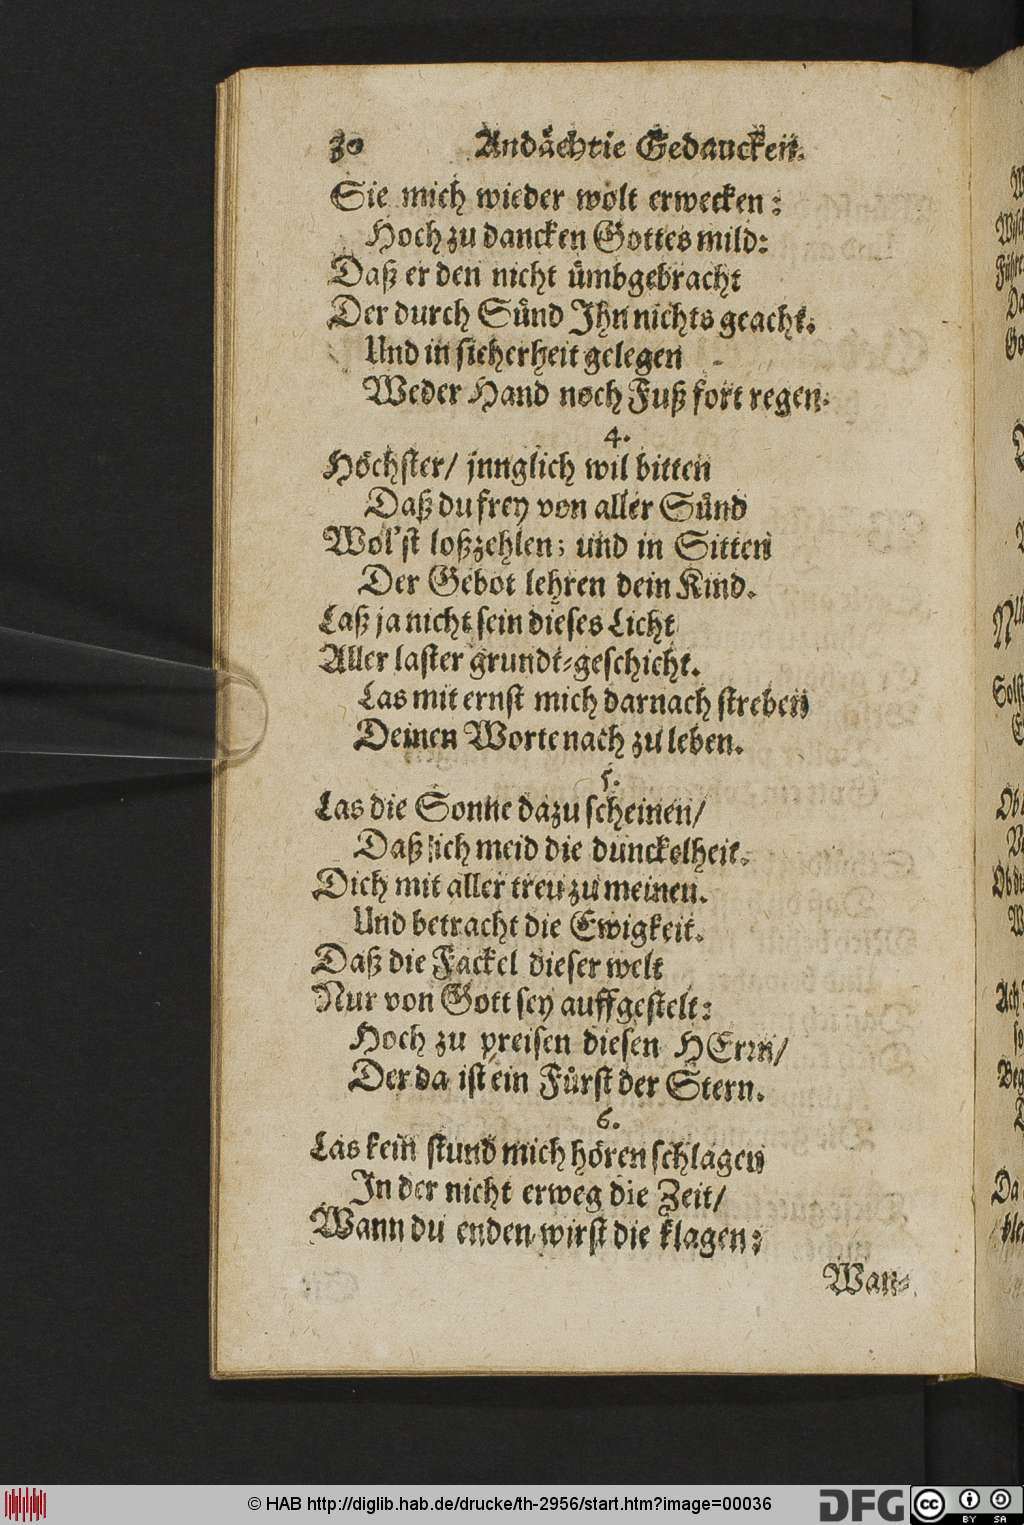 30 Andächtie Gedancken.
Sie mich wieder wolt erwecken:
Hoch zu dancken Gottes mild:
Daß er den nicht ümbgebracht
Der durch Sünd Ihn nichts geacht.
Und in sicherheit gelegen
Weder Hand noch Fuß fort regen.
4.
Höchster/ jnnglich wil bitten
Daß du frey von aller Sünd
Wol'st loßzehlen; und in Sitten
Der Gebot lehren dein Kind.
Laß ja nicht sein dieses Licht
Aller laster grundt-geschicht.
Las mit ernst mich darnach streben
Deinen Worte nach zu leben.
5.
Las die Sonne dazu scheinen/
Daß ich meid die dunckelheit.
Dich mit aller treu zu meinen.
Und betracht die Ewigkeit.
Daß die Fackel dieser welt
Nur von Gott sey auffgestelt:
Hoch zu preisen diesen HErrn/
Der da ist ein Fürst der Stern.
6.
Las kein stund mich hören schlagen
In der nicht erweg die Zeit/
Wann du enden wirst die klagen:
Wan-
© HAB http://diglib.hab.de/drucke/th-2956/start.htm?image=00036
DFG
cc BY SA